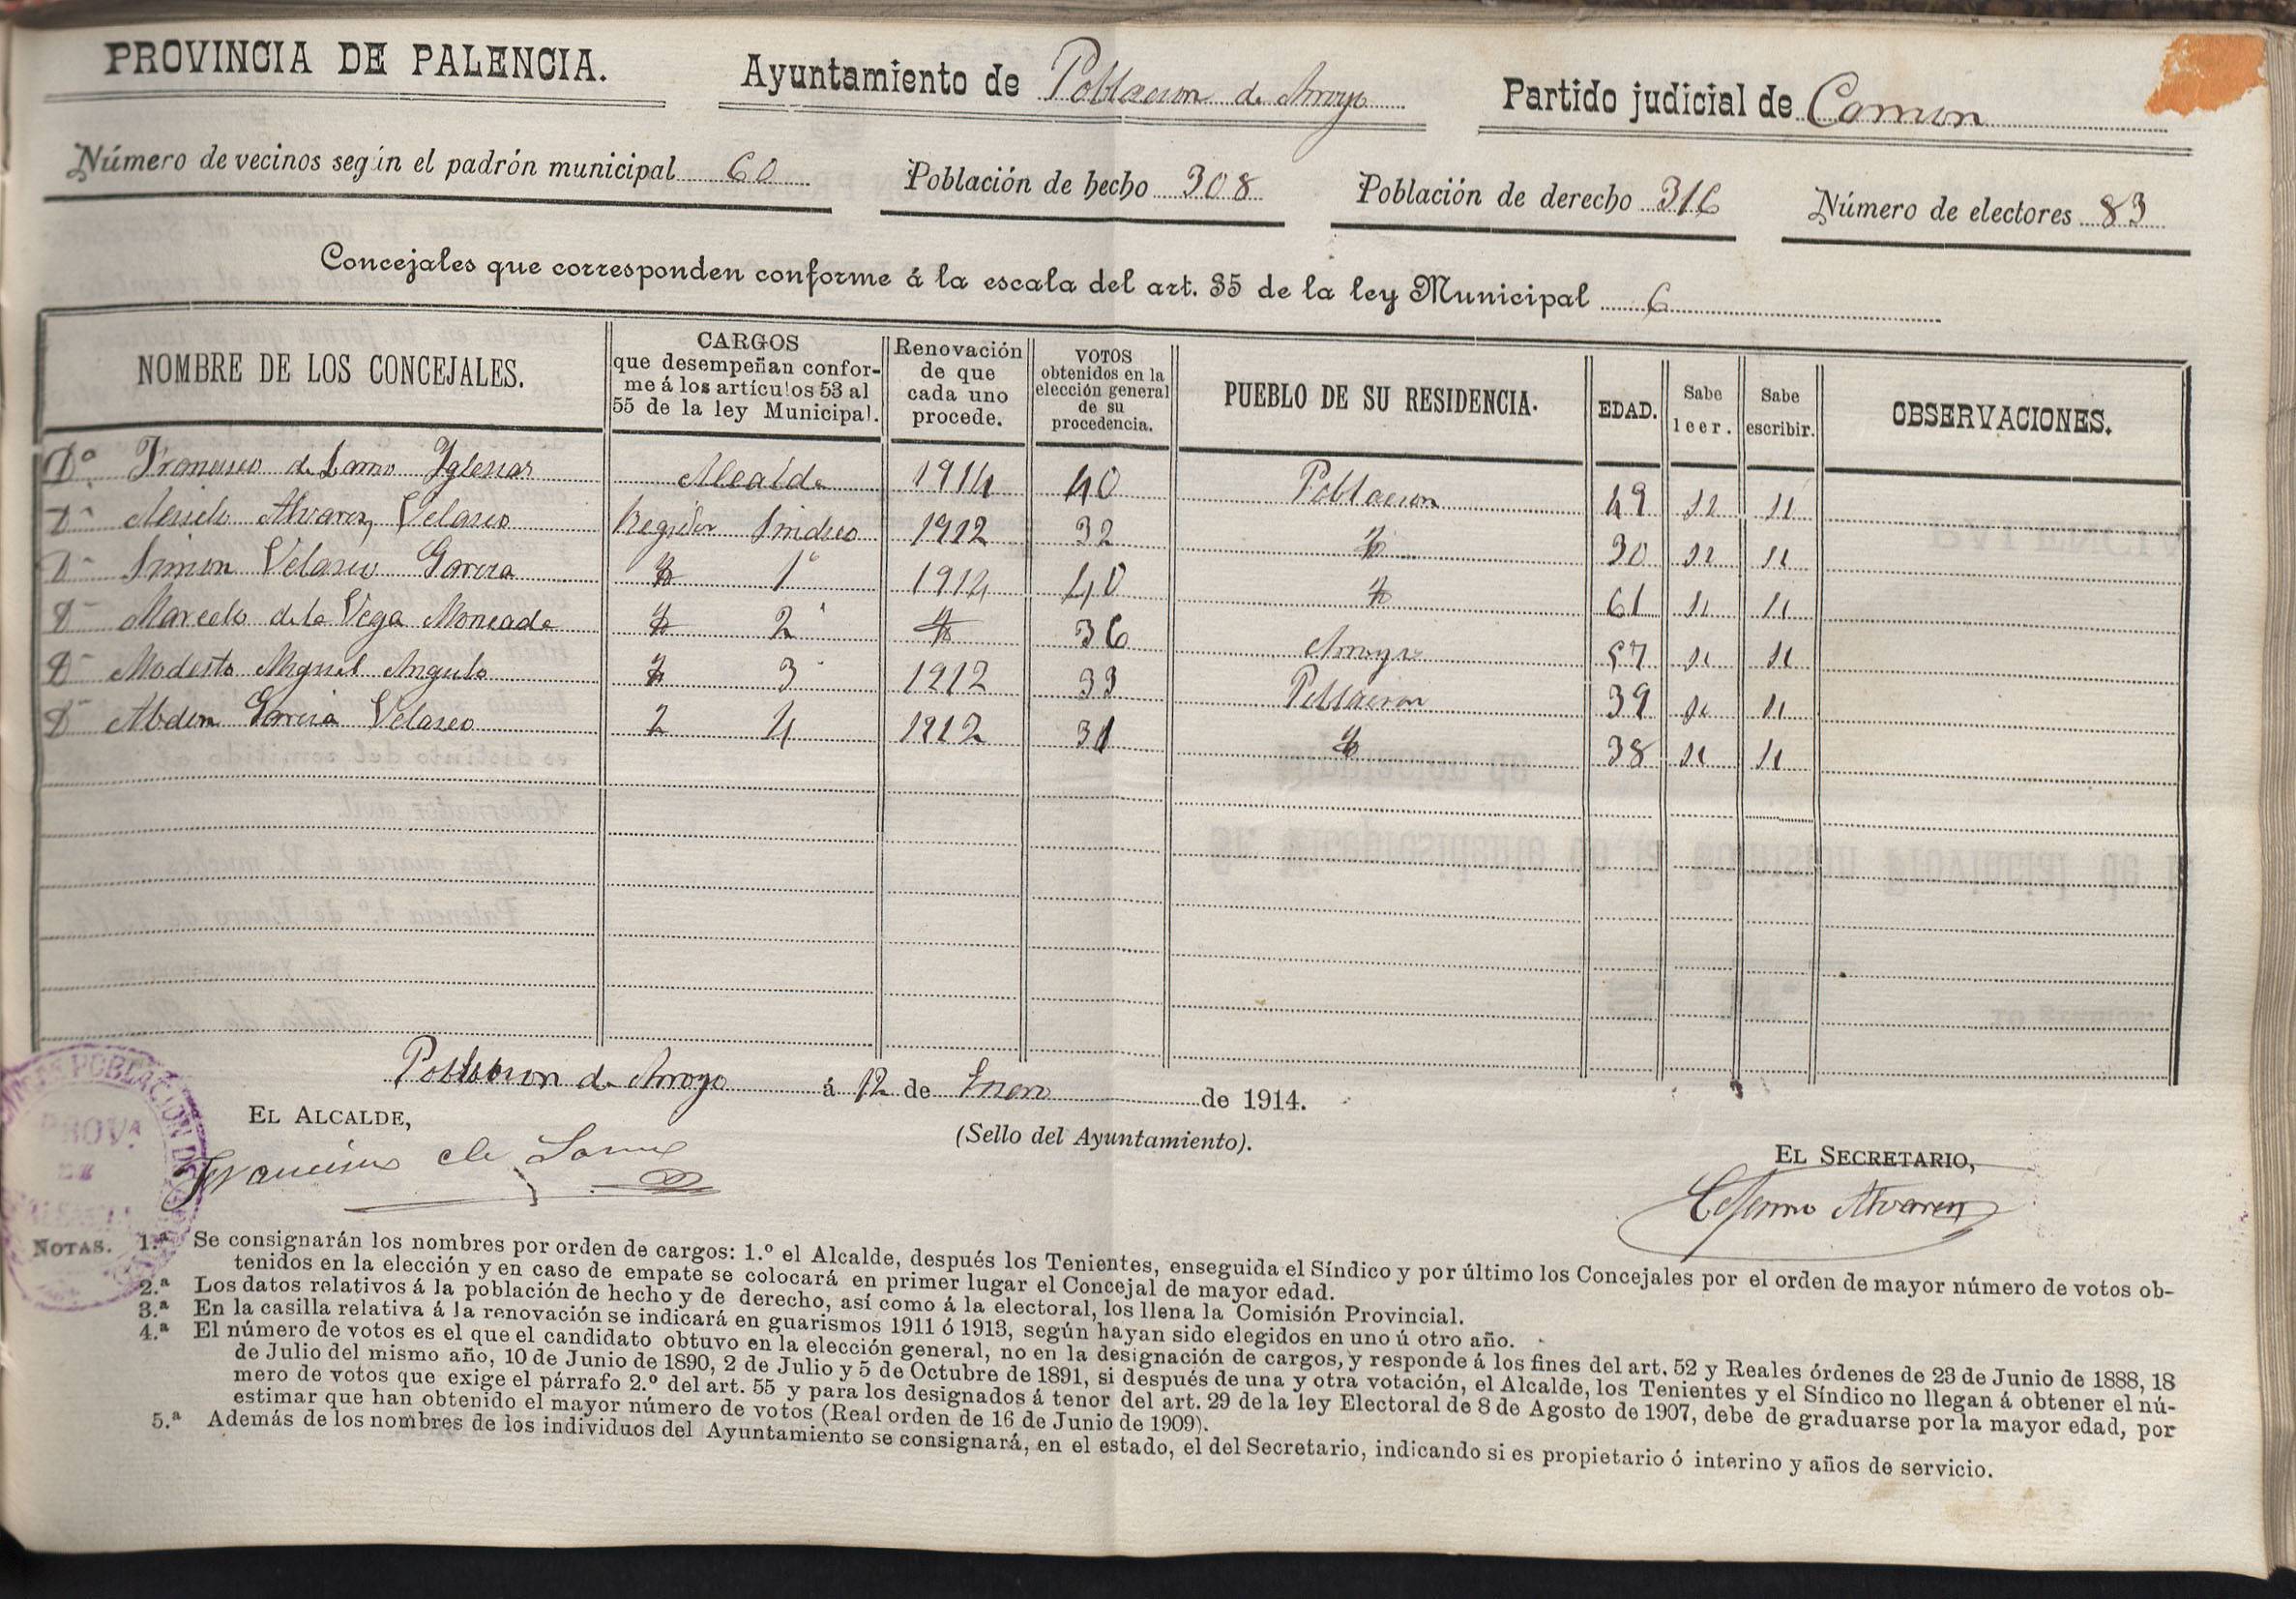 PROVINCIA DE PALENCIA. Ayuntamiento de Poblacion de Arroyo Partido judicial de Carrion
Número de vecinos según el padrón municipal 60 Población de hecho 308 Población de derecho 316 Número de electores 83
Concejales que corresponden conforme á la escala del art. 35 de la ley Municipal 6
NOMBRE DE LOS CONCEJALES. CARGOS que desempeñan confor-me á los artículos 53 al 55 de la ley Municipal. Renovación de que cada uno procede. VOTOS obtenidos en la elección general de su procedencia. PUEBLO DE SU RESIDENCIA. EDAD. Sabe leer. Sabe escribir. OBSERVACIONES.
Dn Francisco de Lamo Yglesias Alcalde 1914 40 Poblacion 49 si si
Dn Alvarez Velasco Regidor Sindico 1912 32 " 30 si si
Dn Simon Velasco Garcia " 1º 1914 40 " 61 si si
Dn Marcelo de la Vega Moncada " 2º " 36 Arroyo 57 si si
Dn Modesto Miguel Angulo " 3º 1912 33 Poblacion 39 si si
Dn Abdon Garcia Velasco " 4 1912 31 " 38 si si
Poblacion de Arroyo á 12 de Enero de 1914.
EL ALCALDE, (Sello del Ayuntamiento). EL SECRETARIO,
Francisco de Lamo Alvarez
NOTAS. 1.ª Se consignarán los nombres por orden de cargos: 1.º el Alcalde, después los Tenientes, enseguida el Síndico y por último los Concejales por el orden de mayor número de votos ob-
tenidos en la elección y en caso de empate se colocará en primer lugar el Concejal de mayor edad.
2.ª Los datos relativos á la población de hecho y de derecho, así como á la electoral, los llena la Comisión Provincial.
3.ª En la casilla relativa á la renovación se indicará en guarismos 1911 ó 1913, según hayan sido elegidos en uno ú otro año.
4.ª El número de votos es el que el candidato obtuvo en la elección general, no en la designación de cargos, y responde á los fines del art. 52 y Reales órdenes de 23 de Junio de 1888, 18
de Julio del mismo año, 10 de Junio de 1890, 2 de Julio y 5 de Octubre de 1891, si después de una y otra votación, el Alcalde, los Tenientes y el Síndico no llegan á obtener el nú-
mero de votos que exige el párrafo 2.º del art. 55 y para los designados á tenor del art. 29 de la ley Electoral de 8 de Agosto de 1907, debe de graduarse por la mayor edad, por
estimar que han obtenido el mayor número de votos (Real orden de 16 de Junio de 1909).
5.ª Además de los nombres de los individuos del Ayuntamiento se consignará, en el estado, el del Secretario, indicando si es propietario ó interino y años de servicio.